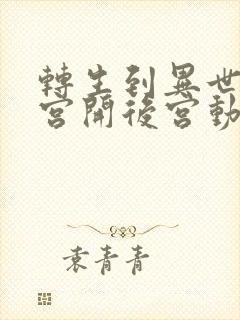 轉生到異世
宮開後宮動
袁青青